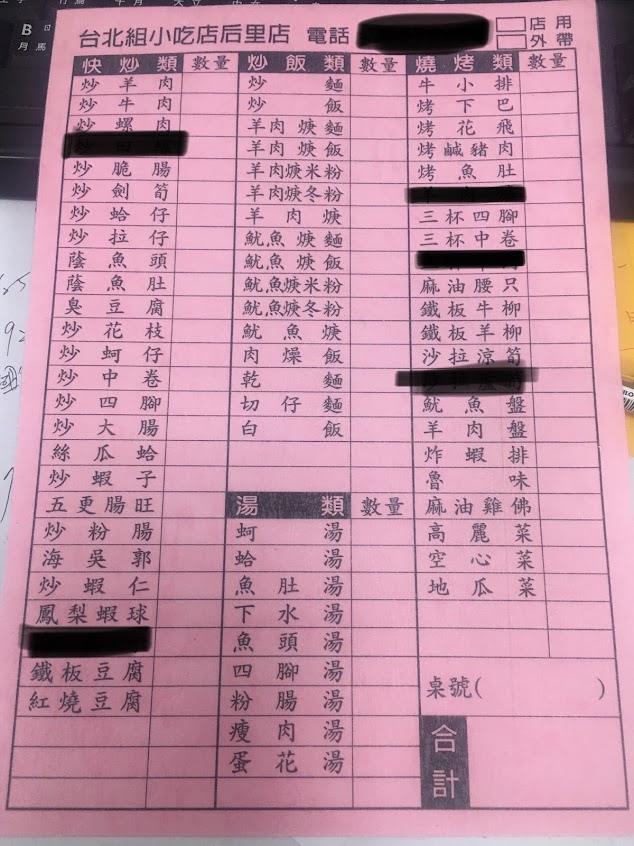 台北組小吃店后里店 電話
店用
外帶
快炒類 數量
炒羊肉
炒牛肉
炒螺肉
炒脆腸
炒劍筍
炒蛤仔
炒拉仔
蔭魚頭
蔭魚肚
臭豆腐
炒花枝
炒蚵仔
炒中卷
炒四腳
炒大腸
絲瓜蛤
炒蝦子
五更腸旺
炒粉腸
海吳郭
炒蝦仁
鳳梨蝦球
鐵板豆腐
紅燒豆腐
炒飯類 數量
炒麵
炒飯
羊肉焿麵
羊肉焿飯
羊肉焿米粉
羊肉焿冬粉
羊肉焿
魷魚焿麵
魷魚焿飯
魷魚焿米粉
魷魚焿冬粉
魷魚焿
肉燥飯
乾麵
切仔麵
白飯
湯類 數量
蚵湯
蛤湯
魚肚湯
下水湯
魚頭湯
四腳湯
粉腸湯
瘦肉湯
蛋花湯
燒烤類 數量
牛小排
烤下巴
烤花飛
烤鹹豬肉
烤魚肚
三杯四腳
三杯中卷
麻油腰只
鐵板牛柳
鐵板羊柳
沙拉涼筍
魷魚盤
羊肉盤
炸蝦排
魯味
麻油雞佛
高麗菜
空心菜
地瓜菜
桌號( )
合計